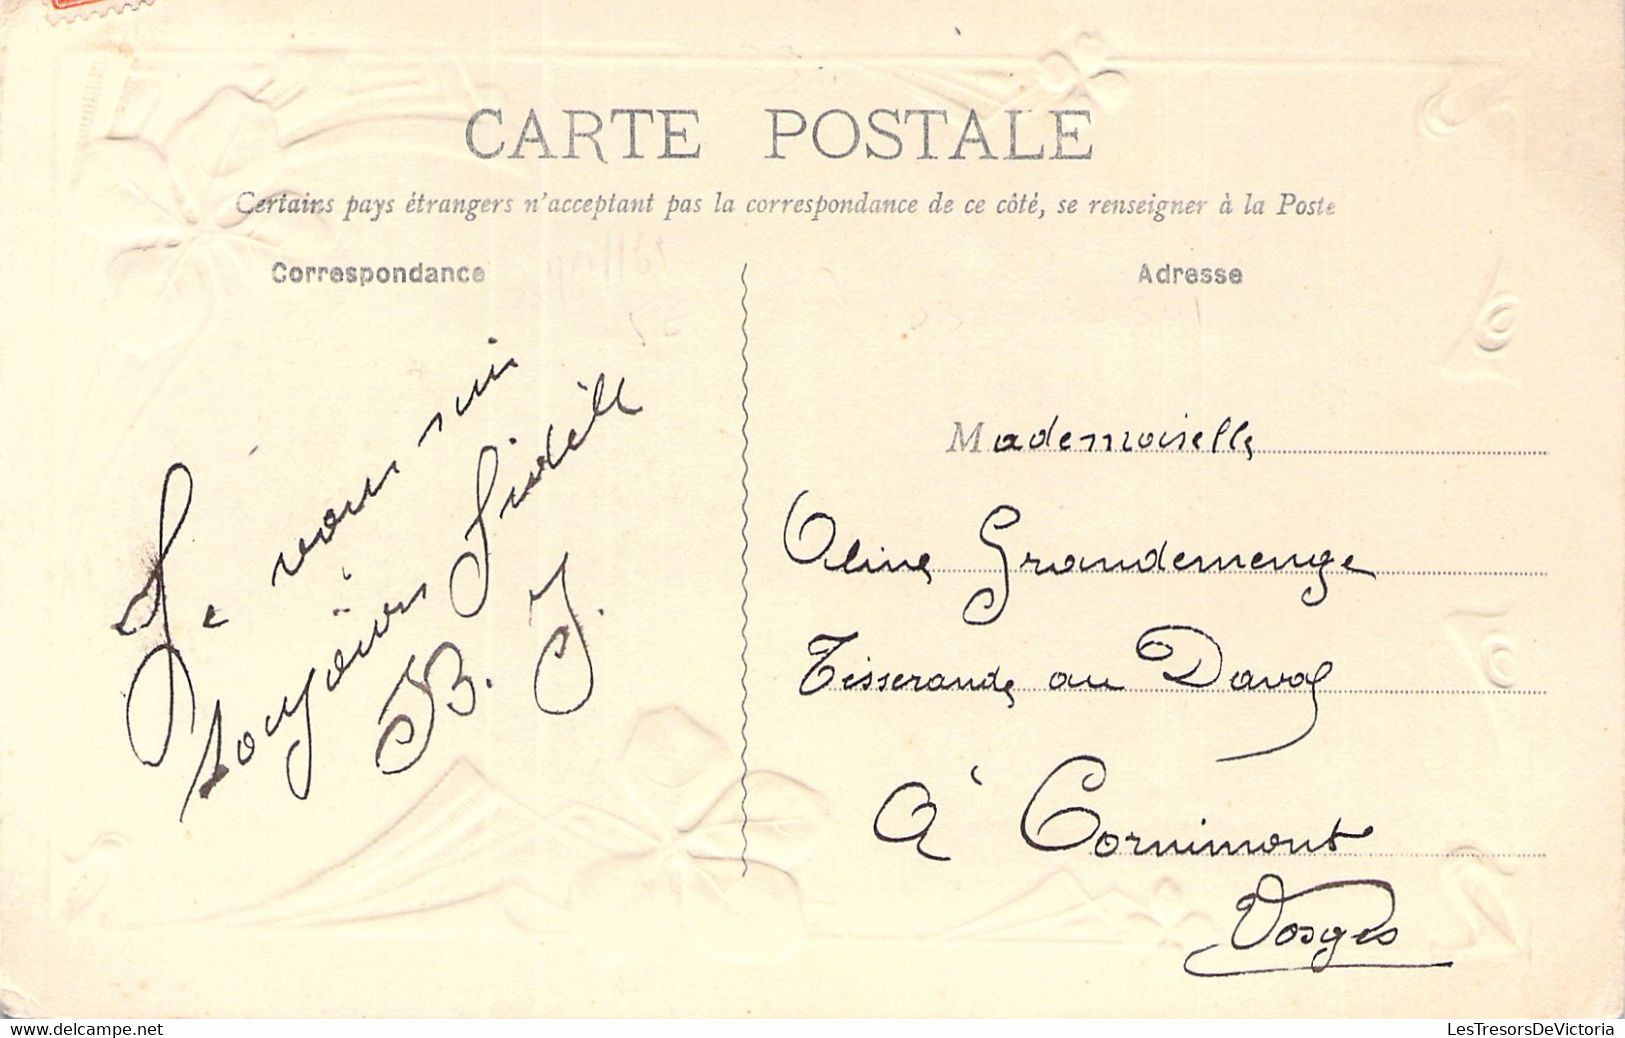 CARTE POSTALE
Certains pays étrangers n'acceptant pas la correspondance de ce côté, se renseigner à la Poste
Correspondance
Adresse
Je vous suis
toujours fidèle
B. J.
Mademoiselle
Oline Grandemenge
Tisserande au Daval
à Cornimont
Vosges
www.delcampe.net
LesTresorsDeVictoria